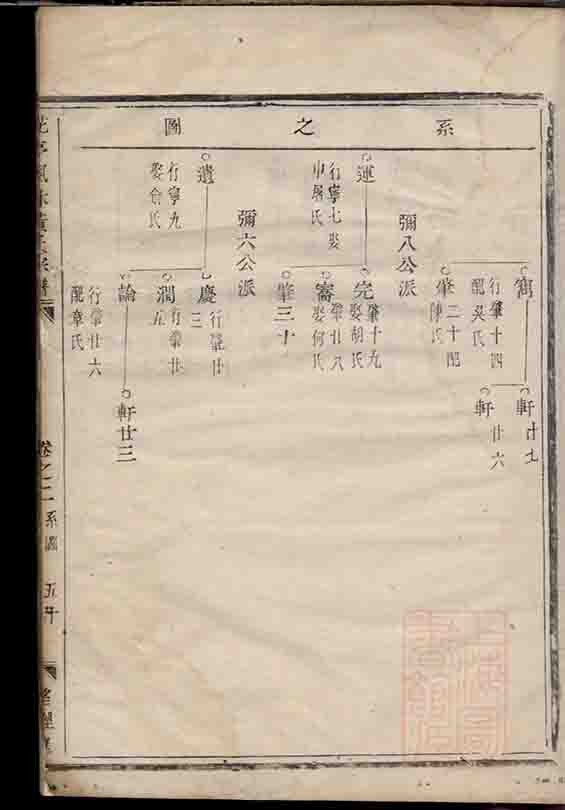 系之圖
寯
行肇十四
配吳氏
軒廿七
軒廿六
肇二十配
陳氏
彌八公派
運
行寧七娶
申屠氏
完
肇十九
娶胡氏
審
肇廿八
娶何氏
肇三十
彌六公派
遺
行寧九
娶俞氏
慶
行肇廿
三
潤
行肇廿
五
論
行肇廿六
配章氏
軒廿三
卷之二
系圖
上海圖書館